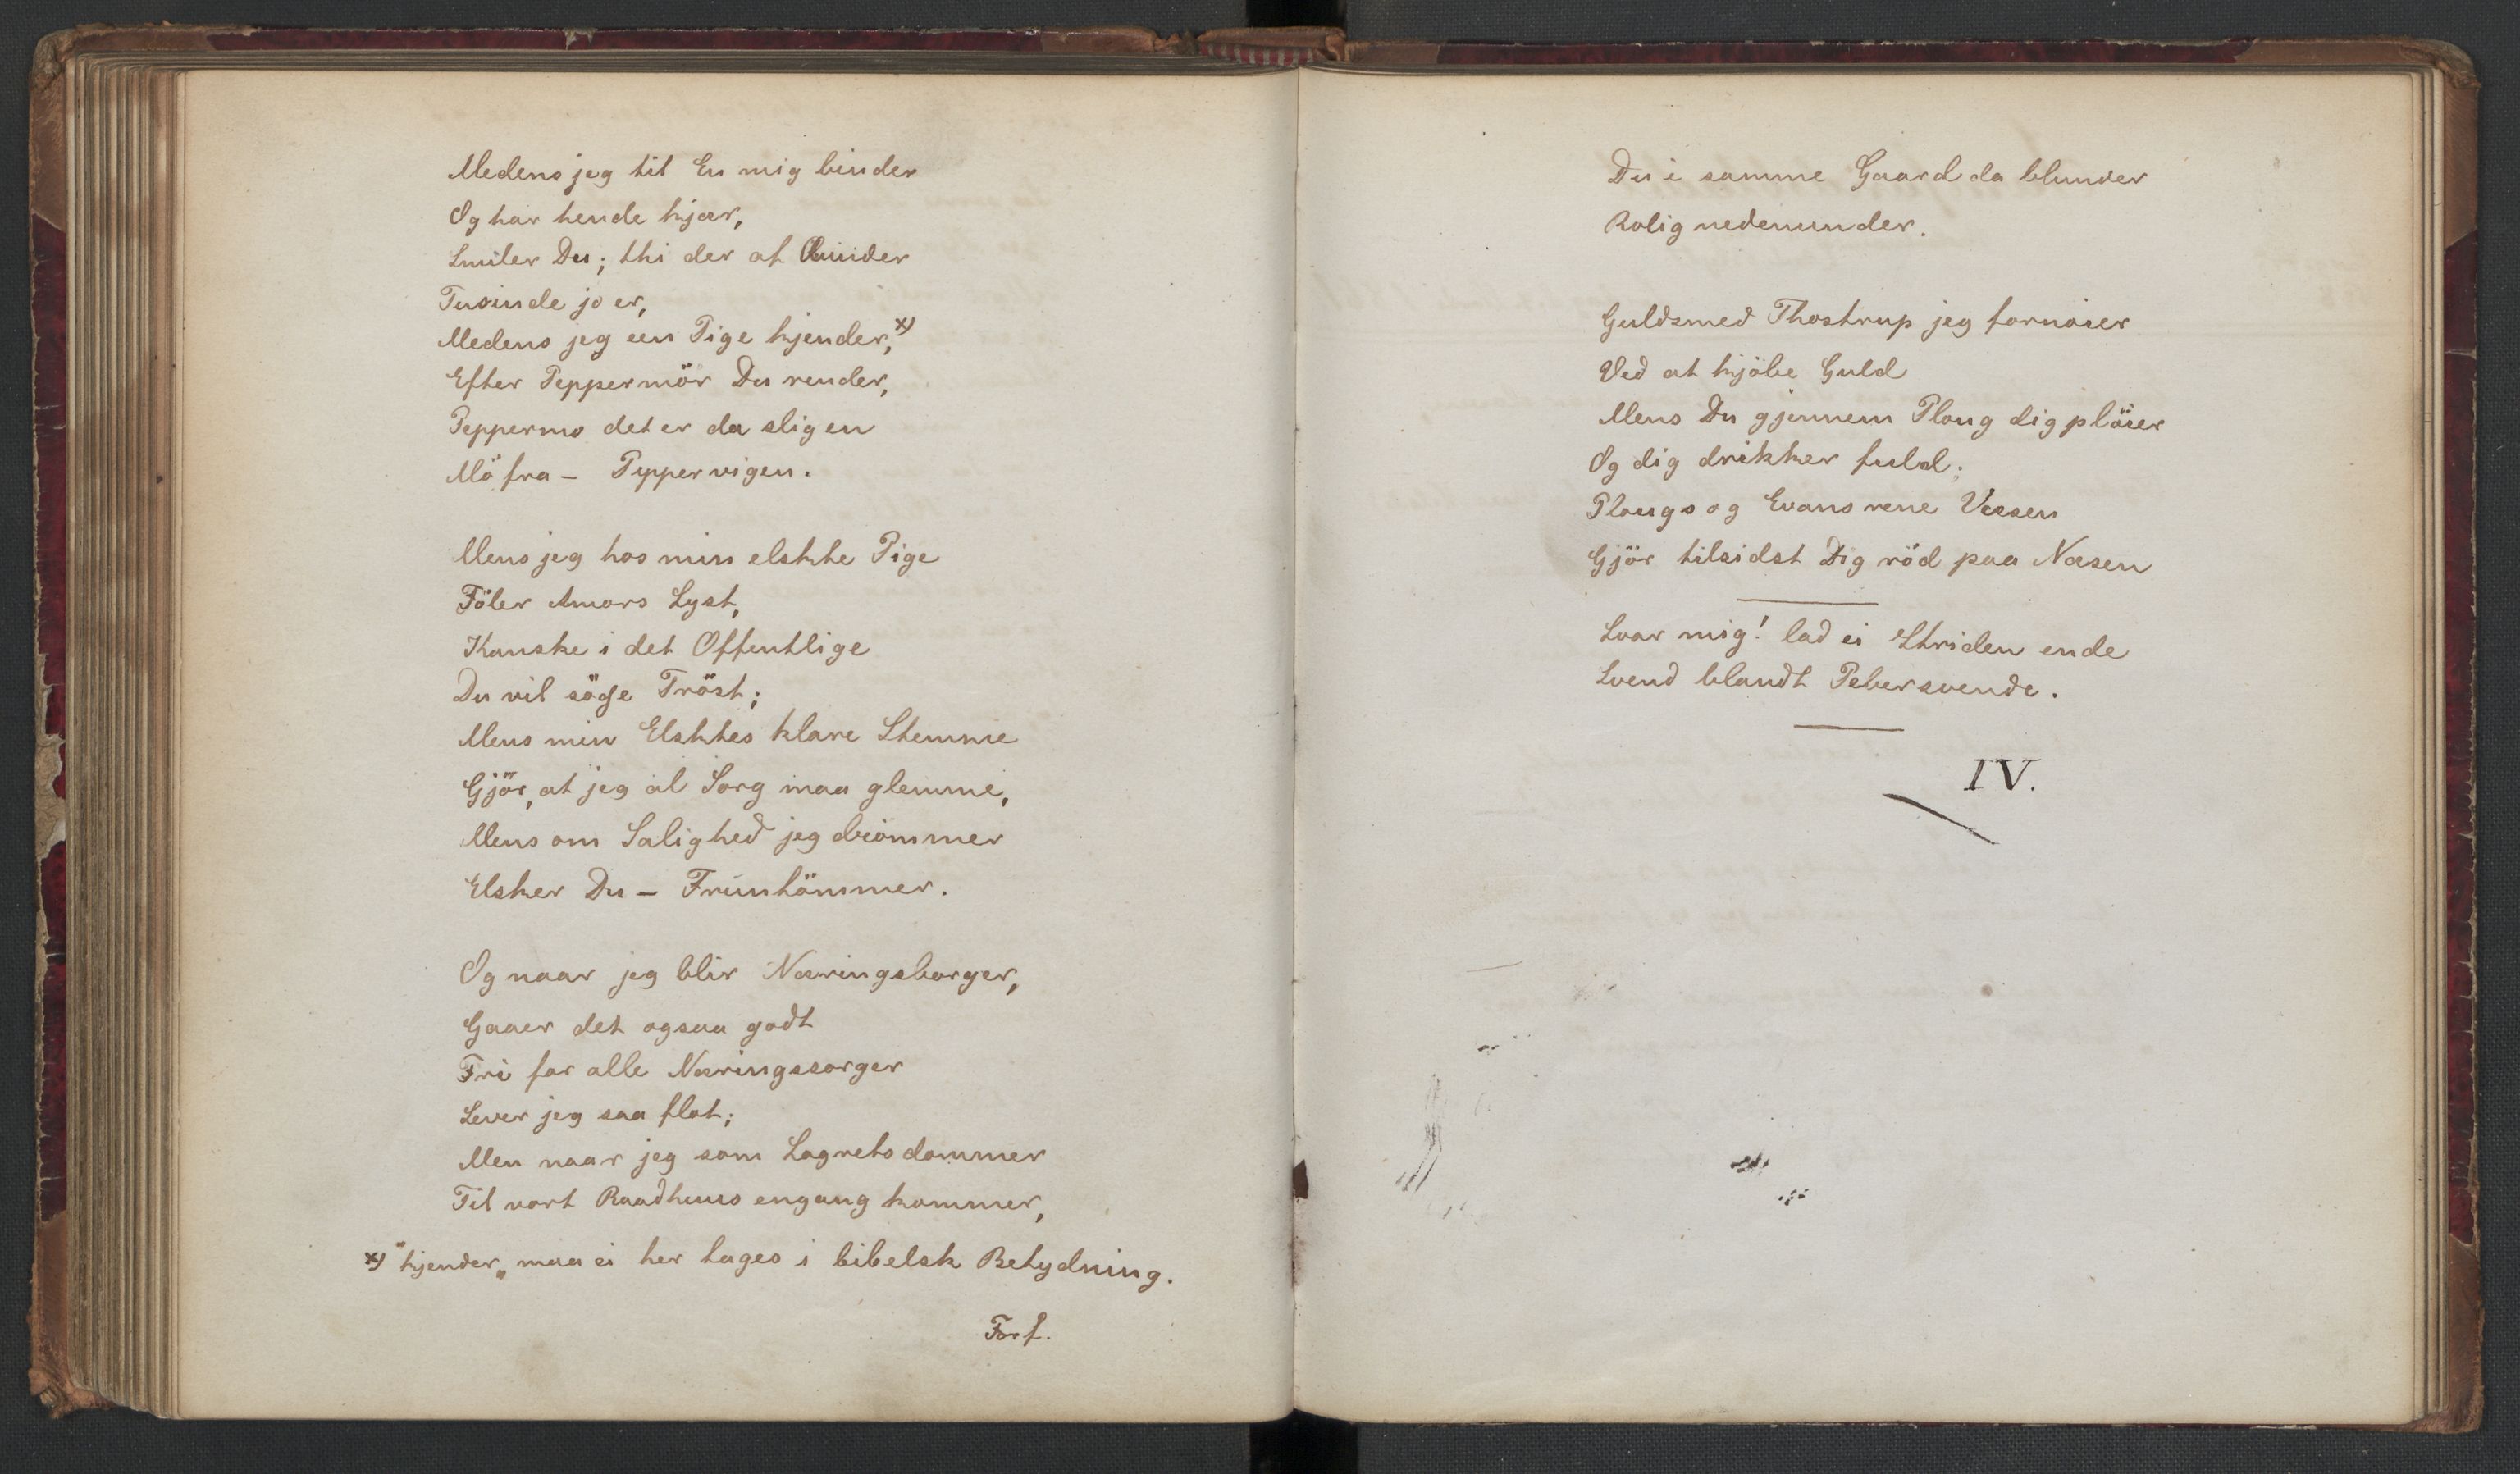 Medens jeg til En mig binder
Og har hende kjær,
Smiler Du; thi der af Qvinder
Tusinde jo er,
Medens jeg een Pige kjender,x)
Efter Peppermör Du render,
Peppermo det er da slig en
Mö fra – Peppervigen.
Mens jeg hos min elskte Pige
Föler Amors Lyst,
Kanske i det Offentlige
Du vil söge Tröst;
Mens min Elsktes klare Stemme
Gjör, at jeg al Sorg maa glemme,
Mens om Salighed jeg drömmer
Elsker Du – Fruentömmer.
Og naar jeg blir Næringsborger,
Gaaer det ogsaa godt
Fri for alle Næringssorger
Lever jeg saa flot;
Men naar jeg som Lagretsdommer
Til vort Raadhuus engang kommer,
x) "kjender„ maa ei her tages i bibelsk Betydning.
Forf.
Du i samme Gaard da blunder
Rolig nedenunder.
Guldsmed Thostrup jeg fornöier
Ved at kjöbe Guld
Mens Du gjennem Ploug dig plöier
Og dig drikker fuld;
Plougs og Evans rene Væsen
Gjör tilsidst Dig röd paa Næsen
Svar mig! lad ei Striden ende
Svend blandt Pebersvende.
IV.